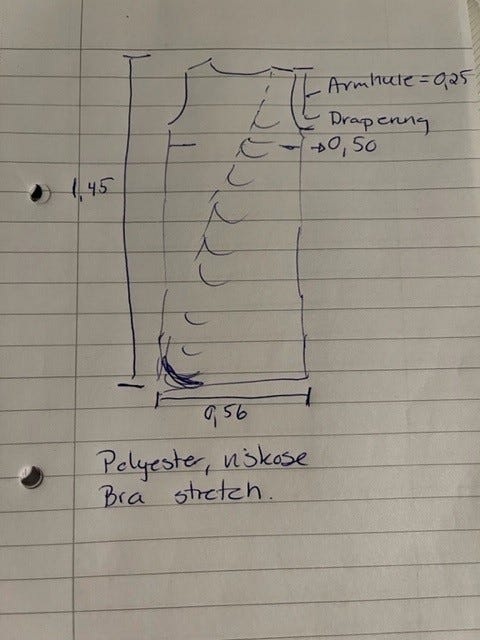 Armhule = 0,25
Drapering
→0,50
1,45
0,56
Polyester, viskose
Bra stretch.